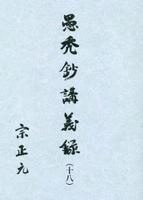 愚禿鈔講義録
(十八)
宗正元